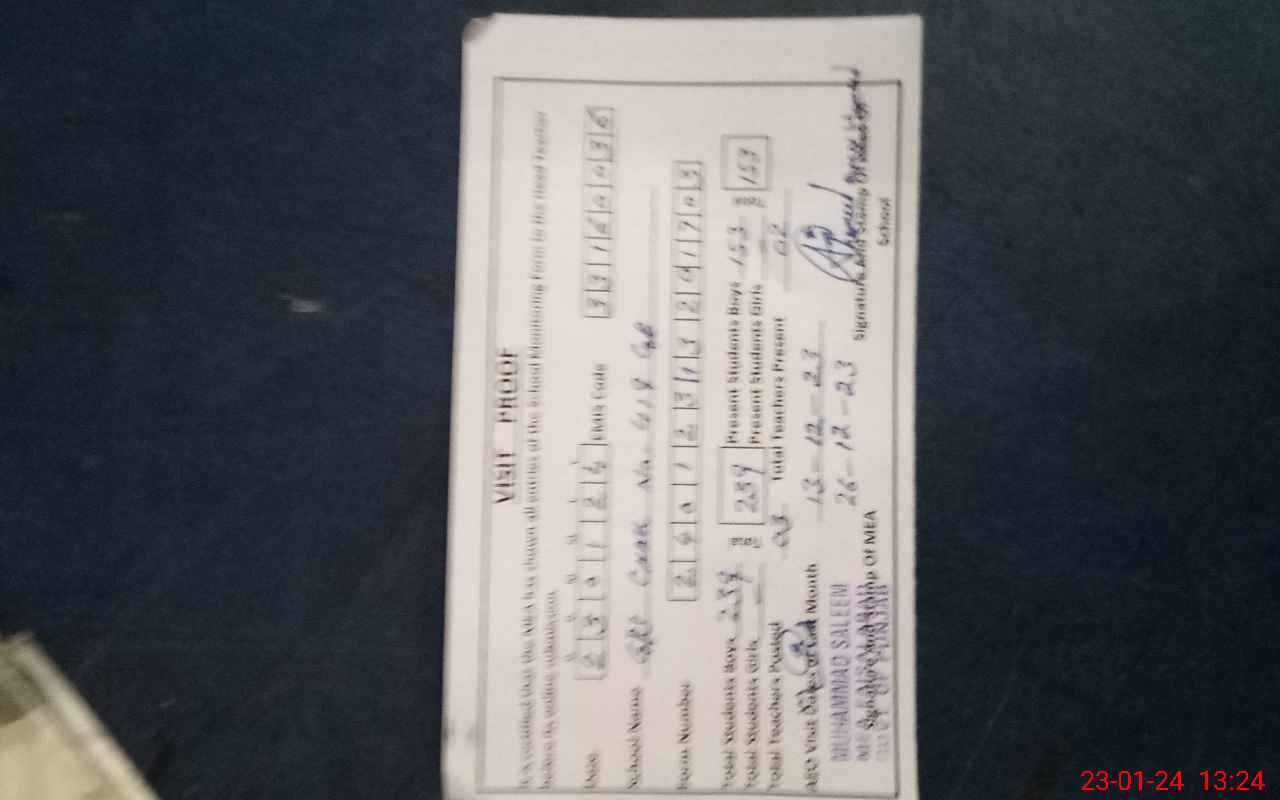 VISIT PROOF
It is certified that the MEA has shown all entries of the School Monitoring Form to the Head Teacher
before its online submission.
Date 2 3 0 1 2 4 EMIS Code 3 3 1 6 0 4 3 6
School Name No. 419 GB
Form Number 2 4 0 1 2 3 1 3 2 9 1 7 0 3
Total Students Boys 239 239 Present Students Boys 153 153
Total Students Girls Present Students Girls
Total Teachers Posted 03 Total Teachers Present 02
AEO Visit Dates of Last Month 13-12-23
26-12-23
MUHAMMAD SALEEM
Signature and Stamp Of MEA
Signature and Stamp
School
23-01-24 13:24